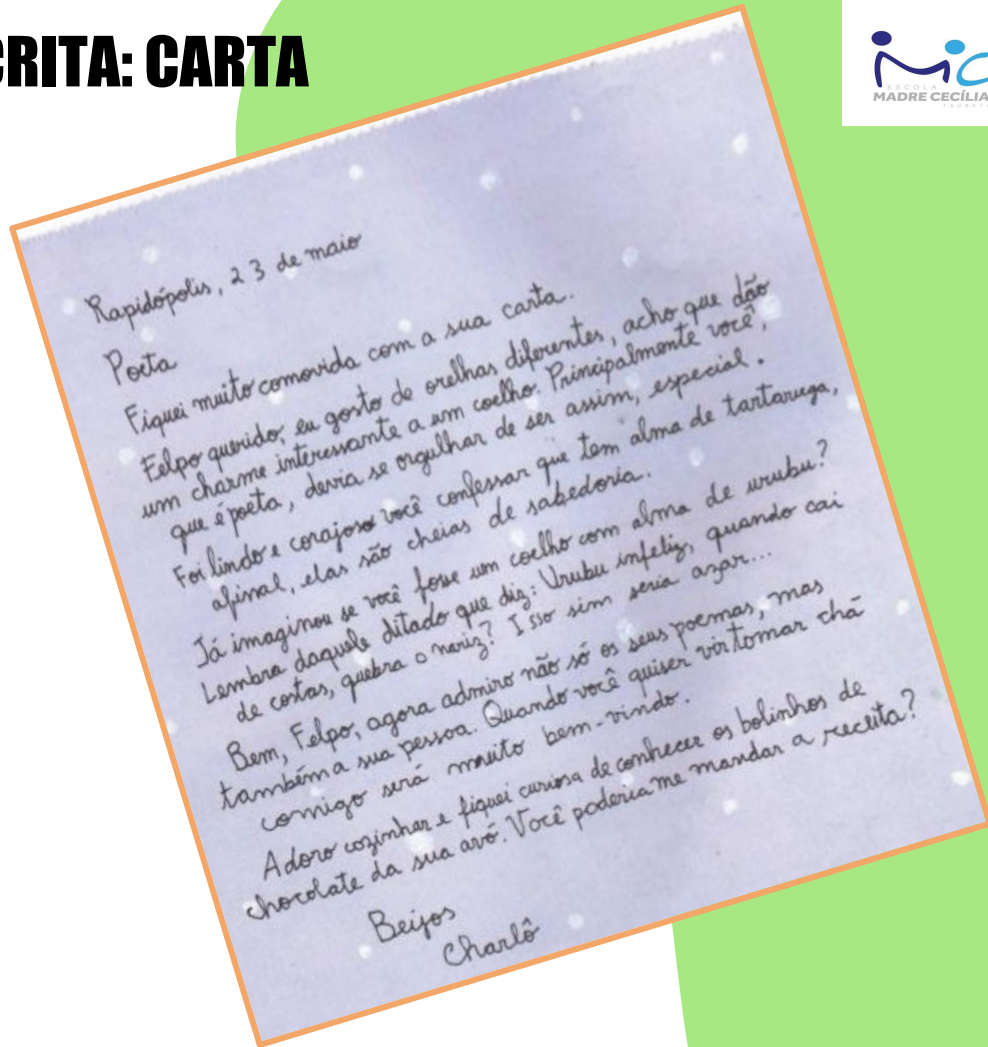 CRITA: CARTA
ESCOLA
MADRE CECÍLIA
Rapidópolis, 23 de maio
Poeta
Fiquei muito comovida com a sua carta.
Felpo querido, eu gosto de orelhas diferentes, acho que dão
um charme interessante a um coelho. Principalmente você,
que é poeta, devia se orgulhar de ser assim, especial.
Foi lindo e corajoso você confessar que tem alma de tartaruga,
afinal, elas são cheias de sabedoria.
Já imaginou se você fosse um coelho com alma de urubu?
Lembra daquele ditado que diz: Urubu infeliz, quando cai
de costas, quebra o nariz? Isso sim seria azar...
Bem, Felpo, agora admiro não só os seus poemas, mas
também a sua pessoa. Quando você quiser vir tomar chá
comigo será muito bem-vindo.
Adoro cozinhar e fiquei curiosa de conhecer os bolinhos de
chocolate da sua avó. Você poderia me mandar a receita?
Beijos
Charlô